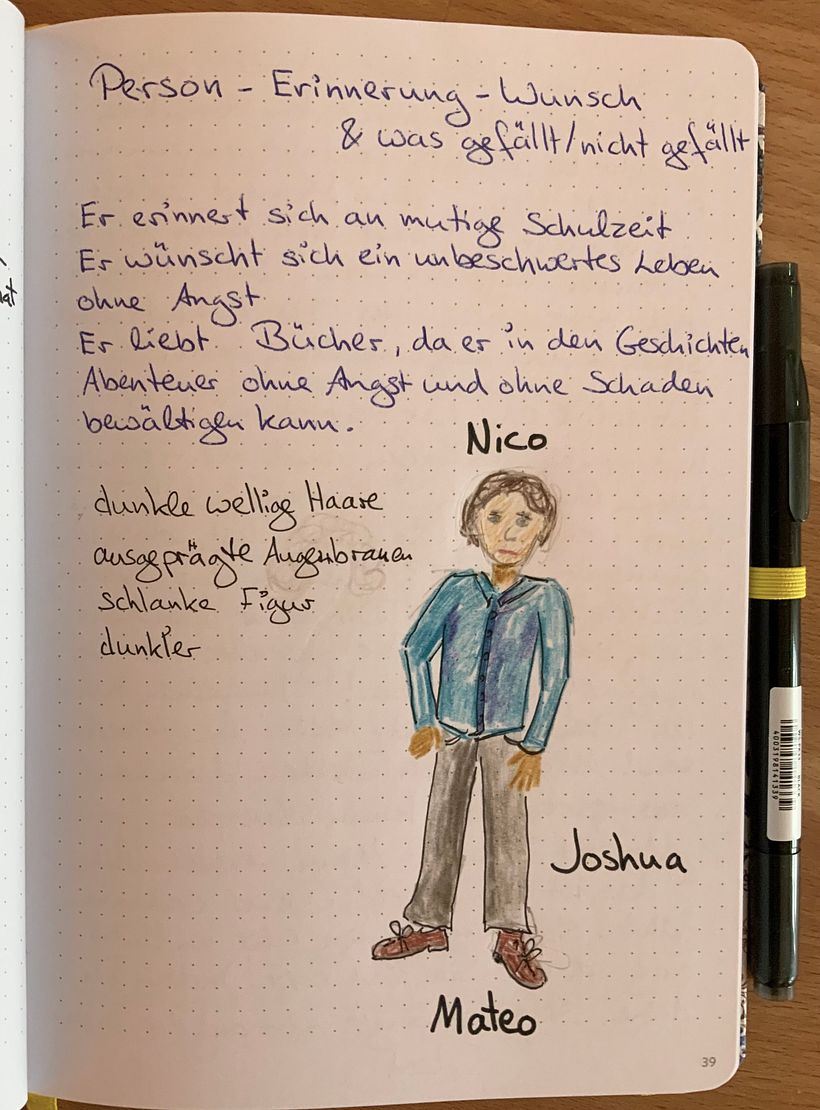 Person - Erinnerung - Wunsch
& was gefällt/nicht gefällt
Er erinnert sich an mutige Schulzeit
Er wünscht sich ein unbeschwertes Leben
ohne Angst
Er liebt Bücher, da er in den Geschichten
Abenteuer ohne Angst und ohne Schaden
bewältigen kann.
Nico
dunkle wellige Haare
ausgeprägte Augenbrauen
schlanke Figur
dunkler
Joshua
Mateo
39
4003198141339